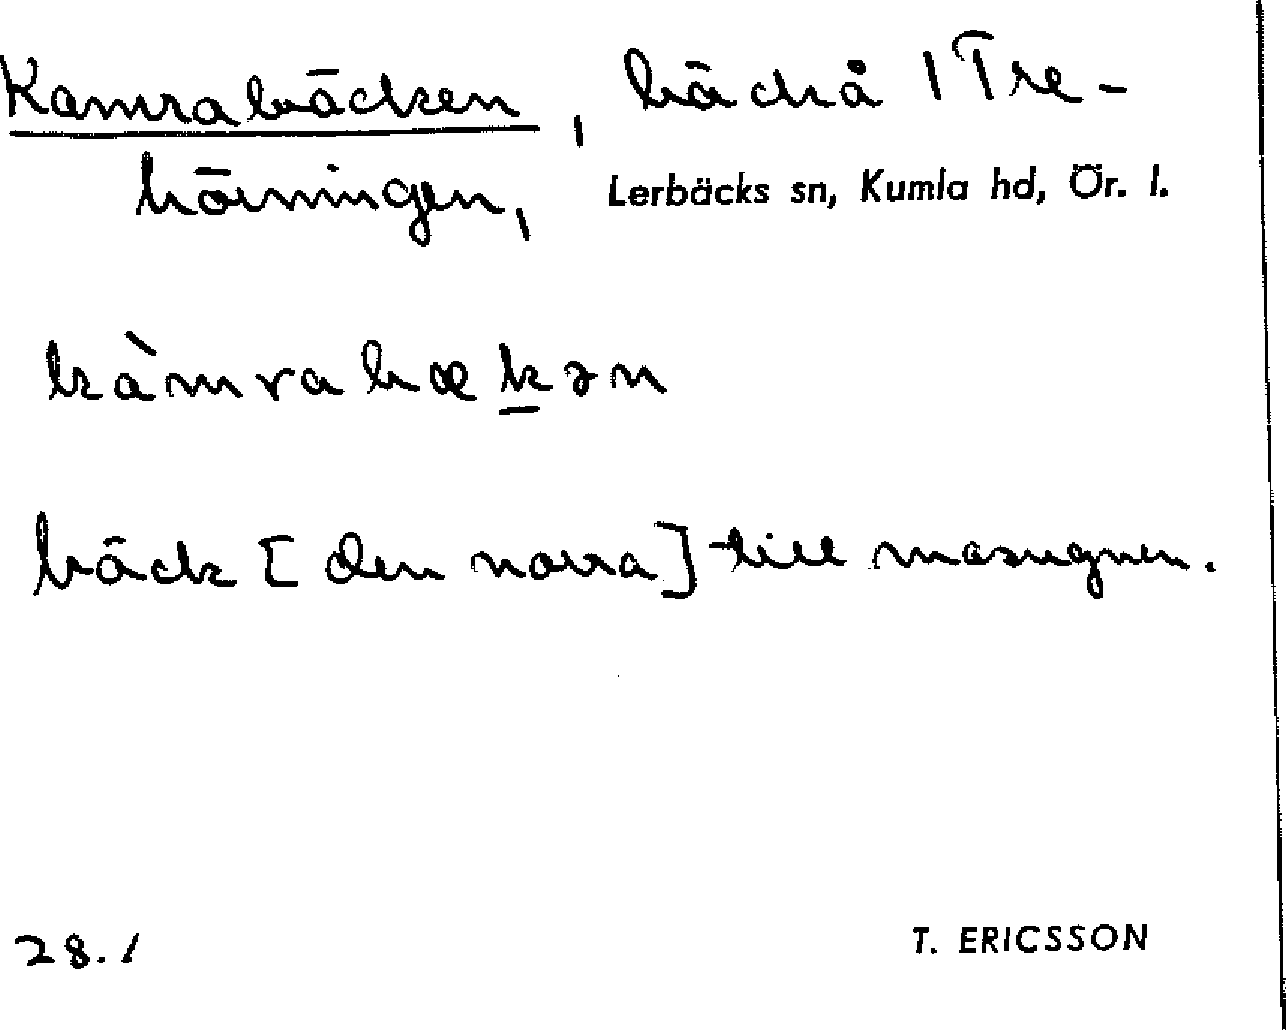 Kamrabäcken, bäck å 1 Tre-
hörningen, Lerbäcks sn, Kumla hd, Ör. l.
kàmrabækən
bäck [den norra] till masugnen.
28.1 T. ERICSSON